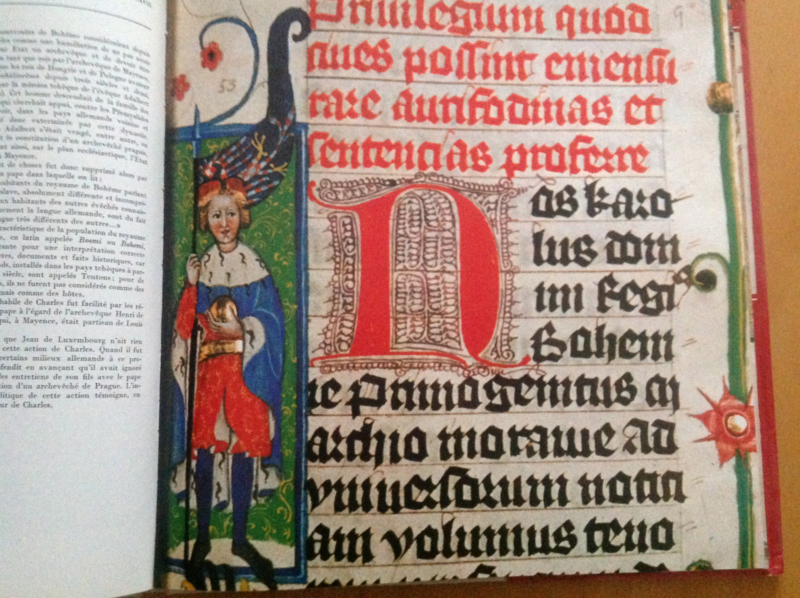 53
Privilegium quod
ciues possint emensu
rare aurifodinas et
sentencias proferre
Nos karo
lus dom
ini Regi
Bohem
ie Primogenitus m
archio morawie Ad
vniuersorum notici
am volumus teno
de Bohême considéraient depuis
comme une humiliation de ne pas avoir
Etat un archevêque et de devoir
les rois de Hongrie et de Pologne
depuis trois siècles et
la mission tchèque de l'évêque Adalbert
Cet homme descendait de la famille
cherchait appui, contre les Přemyslides
dans les pays allemands voisins et
exterminés par cette dynastie.
Adalbert s'était vengé, entre autre,
la constitution d'un archevêché
ainsi, sur le plan ecclésiastique, l'Etat
Mayence.
de choses fut donc supprimé ainsi par
pape dans laquelle on lit :
habitants du royaume de Bohême parlent
slave, absolument différente et
aux habitants des autres évêchés
la langue allemande, sont du fait
que très différents des autres...»
caractéristique de la population du royaume
en latin appelée Boemi ou Bohemi,
pour une interprétation correcte
documents et faits historiques, car
installés dans les pays tchèques à par-
siècle, sont appelés Teutons; pour de
ils ne furent pas considérés comme des
mais comme des hôtes.
habile de Charles fut facilité par les ré-
pape à l'égard de l'archevêque Henri de
qui, à Mayence, était partisan de Louis
que Jean de Luxembourg n'ait rien
cette action de Charles. Quand il fut
certains milieux allemands à ce pro-
en avançant qu'il avait ignoré
les entretiens de son fils avec le pape
tion d'un archevêché de Prague. L'in-
litique de cette action témoigne, en
ur de Charles.